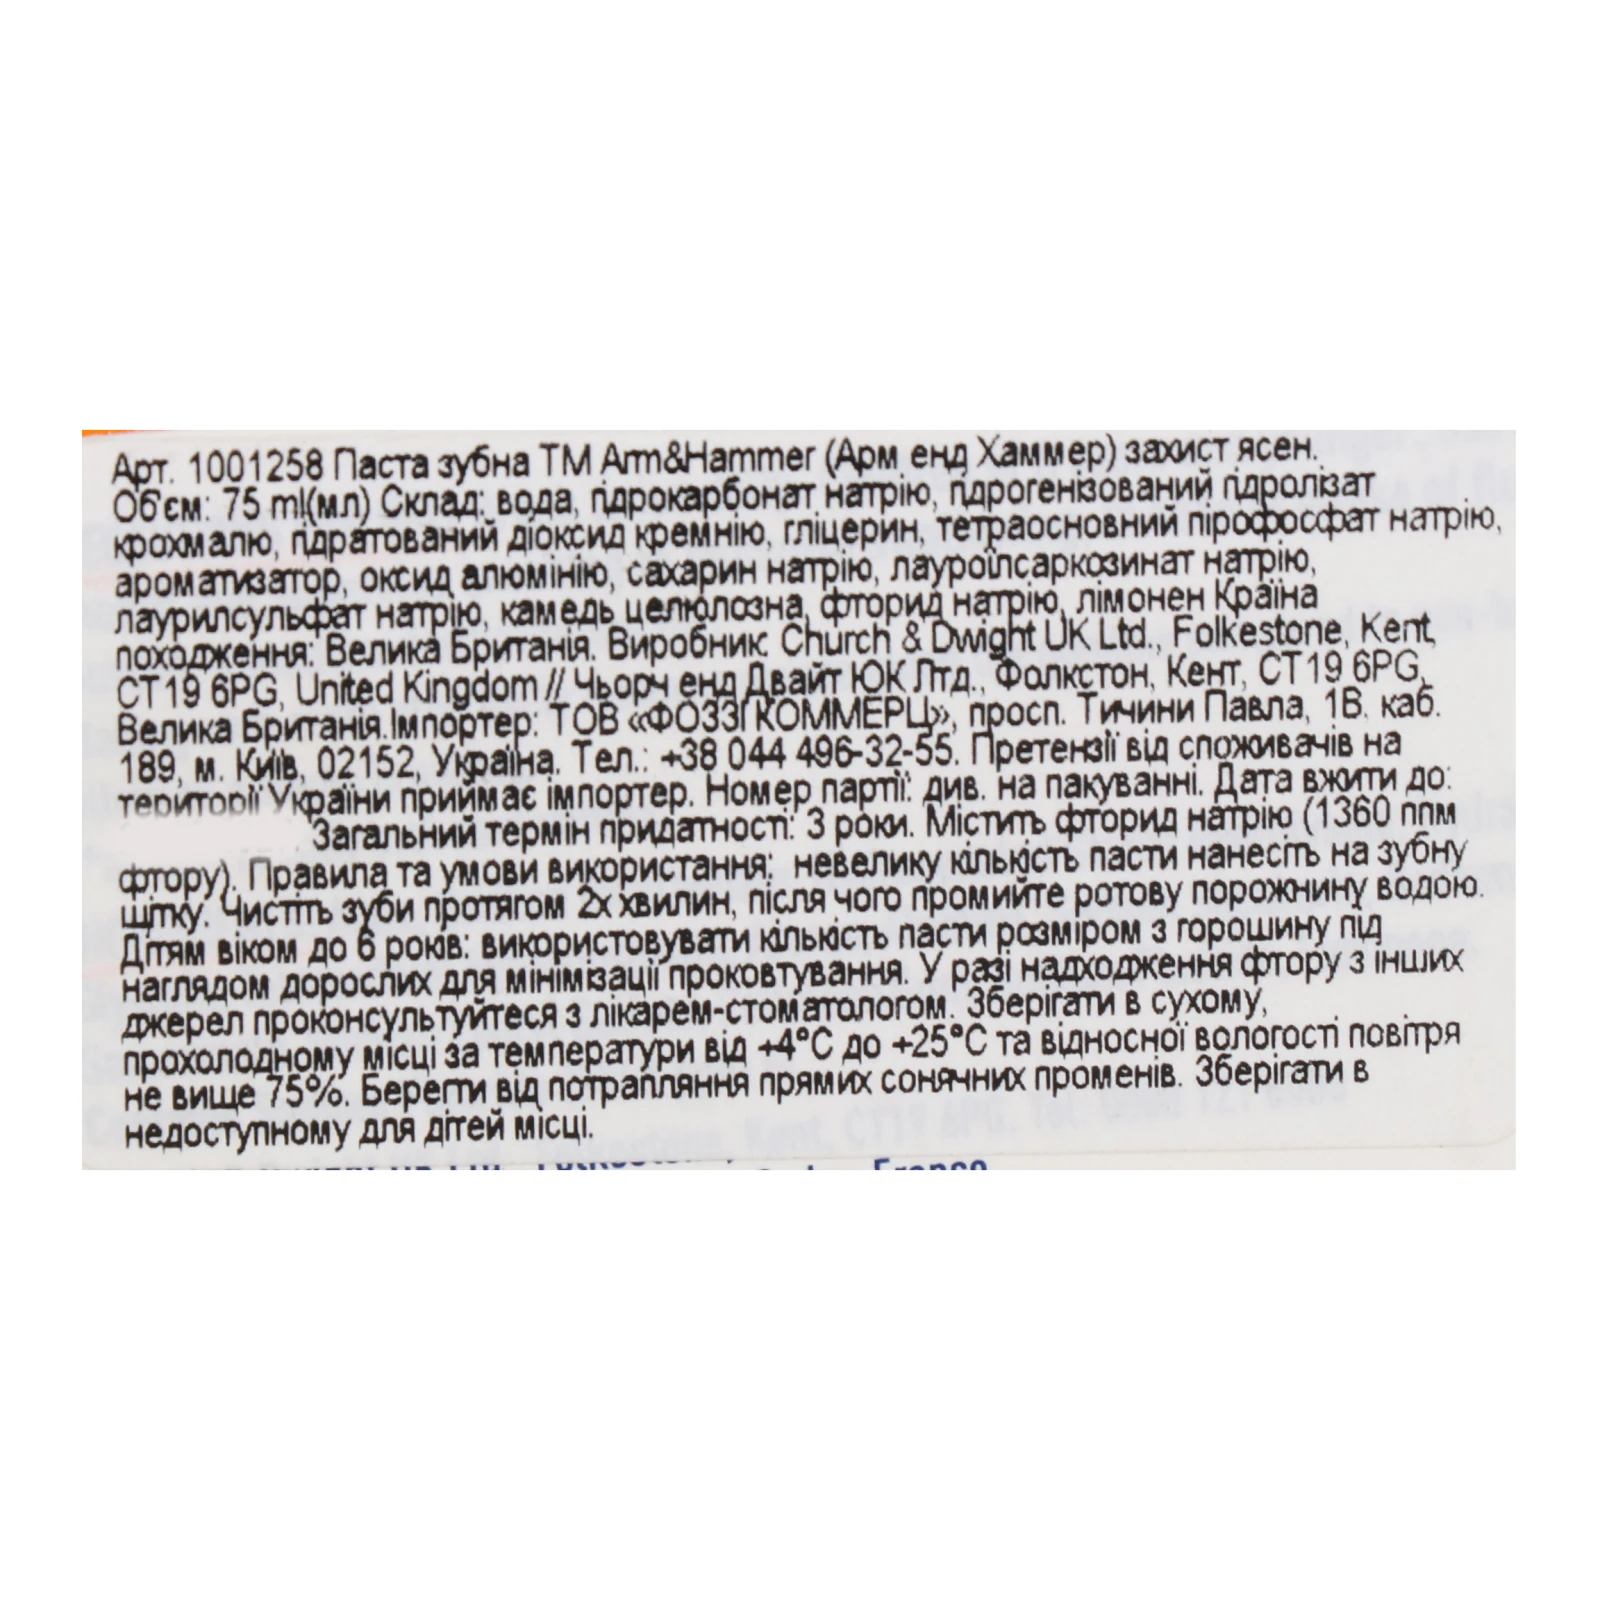 Арт. 1001258 Паста зубна ТМ Arm&Hammer (Арм енд Хаммер) захист ясен.
Об'єм: 75 ml(мл) Склад: вода, гідрокарбонат натрію, гідрогенізований гідролізат
крохмалю, гідратований діоксид кремнію, гліцерин, тетраосновний пірофосфат натрію,
ароматизатор, оксид алюмінію, сахарин натрію, лауроїлсаркозинат натрію,
лаурилсульфат натрію, камедь целюлозна, фторид натрію, лімонен Країна
походження: Велика Британія. Виробник: Church & Dwight UK Ltd., Folkestone, Kent,
CT19 6PG, United Kingdom // Чьорч енд Двайт ЮК Лтд., Фолкстон, Кент, CT19 6PG,
Велика Британія.Імпортер: ТОВ «ФОЗЗІ КОММЕРЦ», просп. Тичини Павла, 1В. каб.
189, м. Київ, 02152, Україна. Тел.: +38 044 496-32-55. Претензії від споживачів на
території України приймає імпортер. Номер партії: див. на пакуванні. Дата вжити до:
Загальний термін придатності: 3 роки. Містить фторид натрію (1360 ппм
фтору). Правила та умови використання: невелику кількість пасти нанесіть на зубну
щітку. Чистіть зуби протягом 2х хвилин, після чого промийте ротову порожнину водою.
Дітям віком до 6 років: використовувати кількість пасти розміром з горошину під
наглядом дорослих для мінімізації проковтування. У разі надходження фтору з інших
джерел проконсультуйтеся з лікарем-стоматологом. Зберігати в сухому,
прохолодному місці за температури від +4°С до +25°С та відносної вологості повітря
не вище 75%. Берегти від потрапляння прямих сонячних променів. Зберігати в
недоступному для дітей місці.